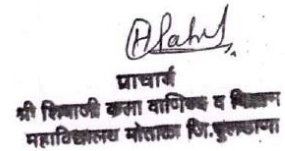 प्राचार्य
श्री शिवाजी कला वाणिज्य व विज्ञान
महाविद्यालय मोताळा जि.बुलडाणा